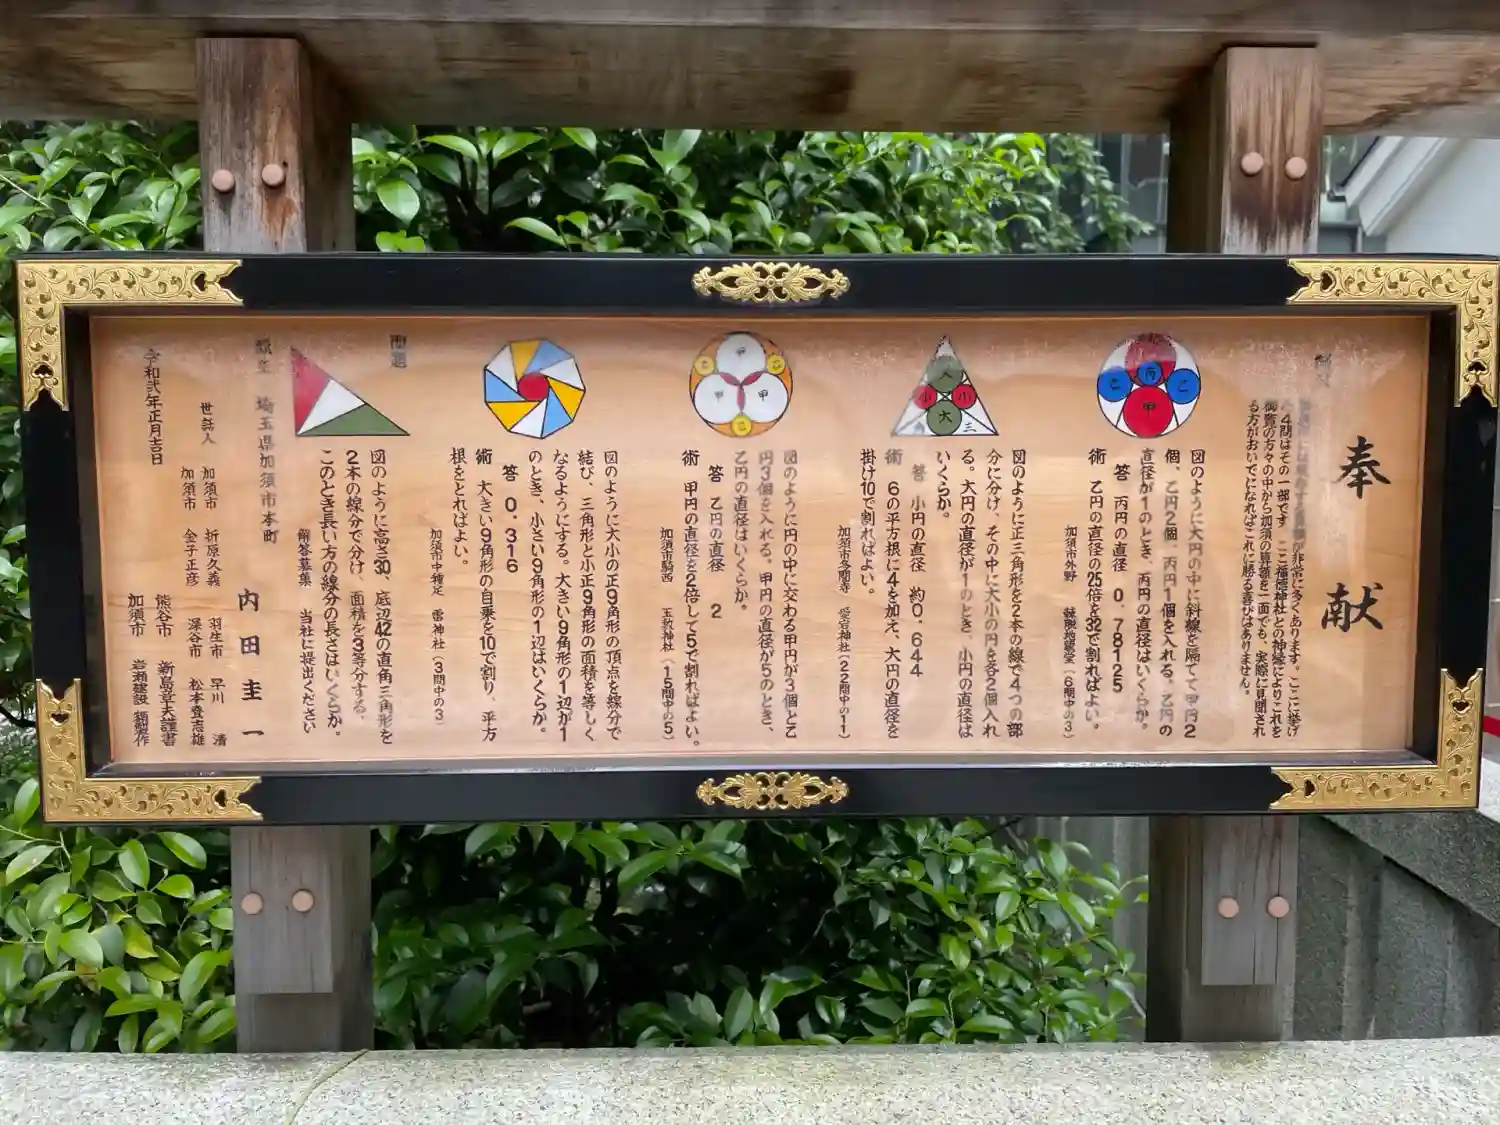 奉献
非常に多くあります。ここに挙げ
4問はその一部です ここ福徳神社との神縁によりこれを
御覧の方々の中から加須の算額を一面でも、実際に見聞され
る方がおいでになればこれに勝る喜びはありません。
丙
乙
乙
甲
図のように大円の中に斜線を隔てて甲円2
個、乙円2個、丙円1個を入れる。乙円の
直径が1のとき、丙円の直径はいくらか。
答 丙円の直径 0.78125
術 乙円の直径の25倍を32で割ればよい。
加須市外野 (6問中の3)
小
小
大
三
図のように正三角形を2本の線で4つの部
分に分け、その中に大小の円を各2個入れ
る。大円の直径が1のとき、小円の直径は
いくらか。
答 小円の直径 約0.644
術 6の平方根に4を加え、大円の直径を
掛け10で割ればよい。
加須市多聞寺 愛宕神社(22問中の11)
甲
乙
乙
甲
甲
乙
図のように円の中に交わる甲円が3個と乙
円3個を入れる。甲円の直径が5のとき、
乙円の直径はいくらか。
答 乙円の直径 2
術 甲円の直径を2倍して5で割ればよい。
加須市騎西 玉敷神社(15問中の5)
図のように大小の正9角形の頂点を線分で
結び、三角形と小正9角形の面積を等しく
なるようにする。大きい9角形の1辺が1
のとき、小さい9角形の1辺はいくらか。
答 0.316
術 大きい9角形の自乗を10で割り、平方
根をとればよい。
加須市中種足 雷神社(3問中の3)
問題
図のように高さ30、底辺42の直角三角形を
2本の線分で分け、面積を3等分する、
このとき長い方の線分の長さはいくらか。
解答募集 当社に提出ください
埼玉県加須市本町
内田圭一
世話人 加須市 折原久義 羽生市 早川 清
加須市 金子正彦 深谷市 松本登志雄
熊谷市 新島章夫謹書
加須市 岩瀬建設 額製作
令和弐年正月吉日